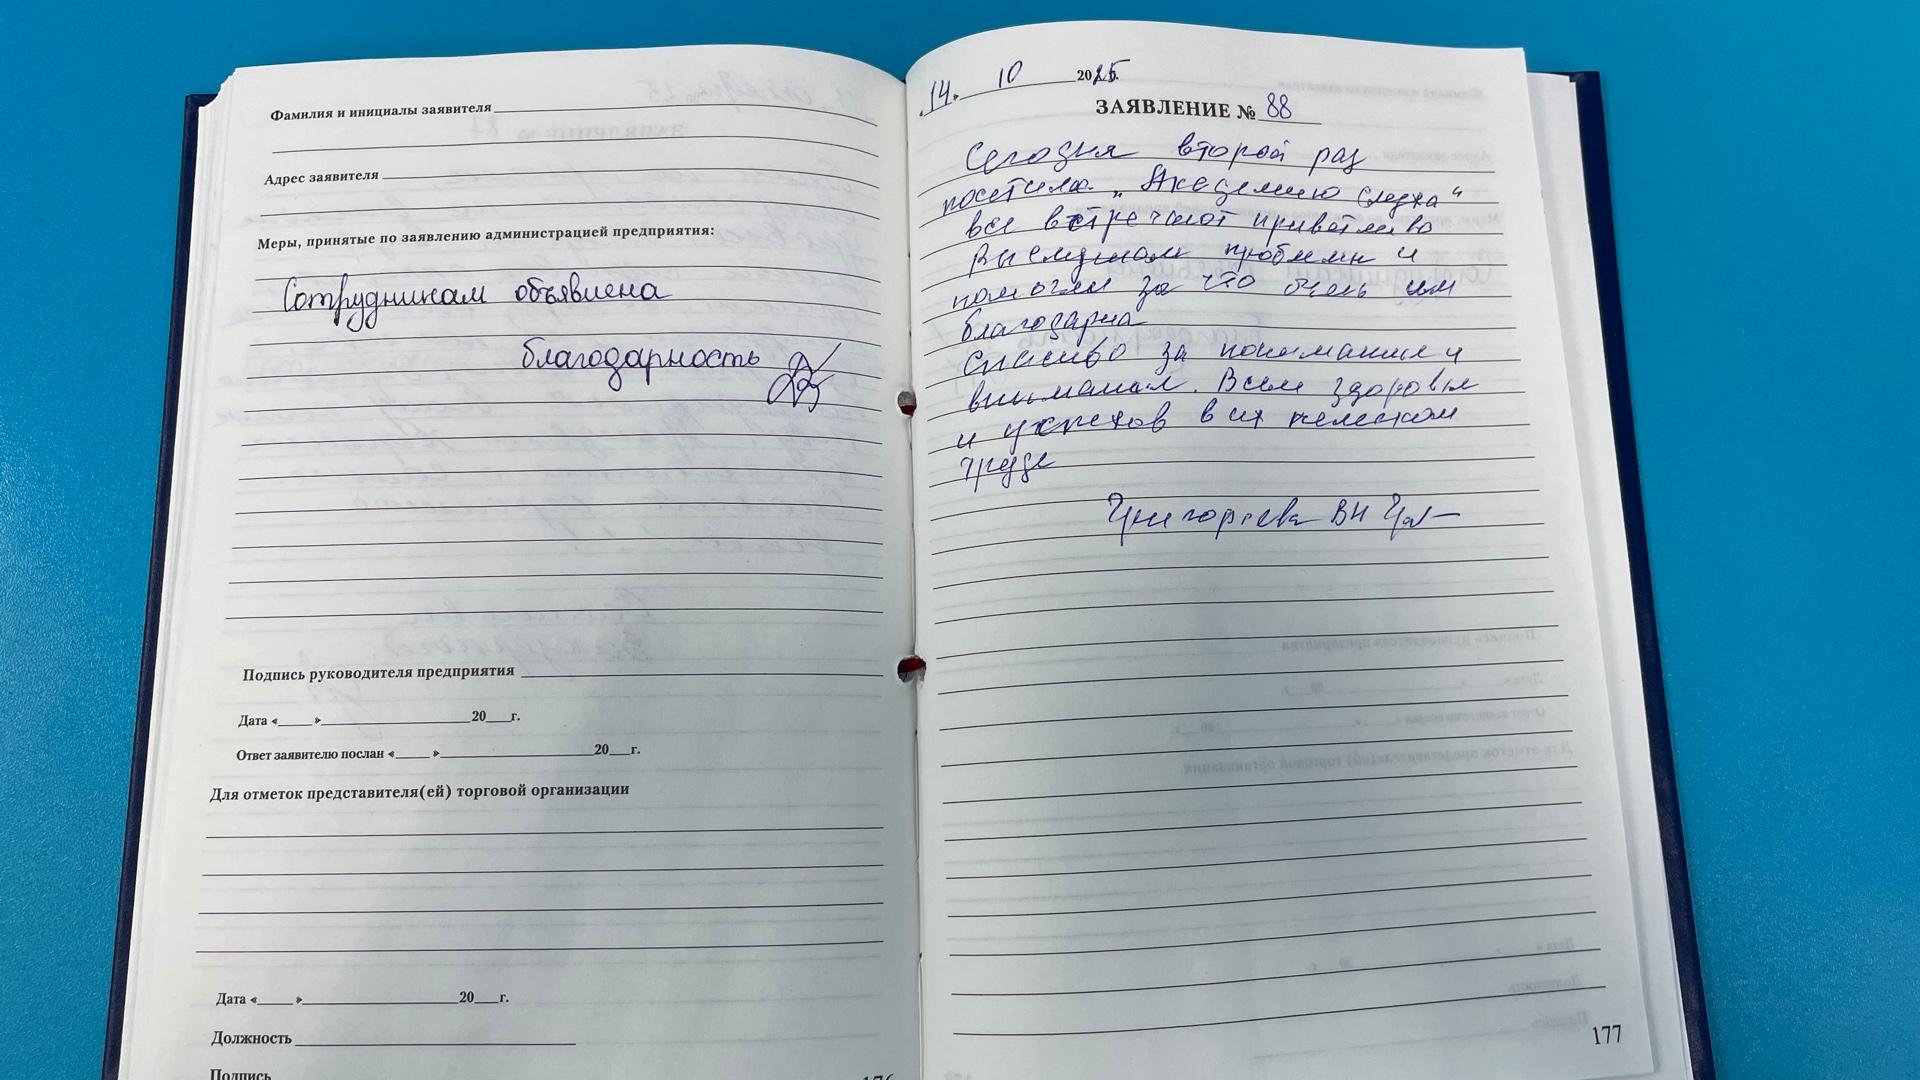 Фамилия и инициалы заявителя
Адрес заявителя
Меры, принятые по заявлению администрацией предприятия:
Сотрудникам объявлена
благодарность
Подпись руководителя предприятия
Дата «____»____________20___г.
Ответ заявителю послан «____»____________20___г.
Для отметок представителя(ей) торговой организации
Дата «____»____________20___г.
Должность
Подпись
176
«14» 10 2025г.
ЗАЯВЛЕНИЕ № 88
Сегодня второй раз
посетила "Академию слуха"
все встречают приветливо
Выслушали проблемы и
помогли за что очень им
благодарна
Спасибо за понимание и
внимание. Всем здоровья
и успехов в их нелегком
труде
Григорьева ВН
177